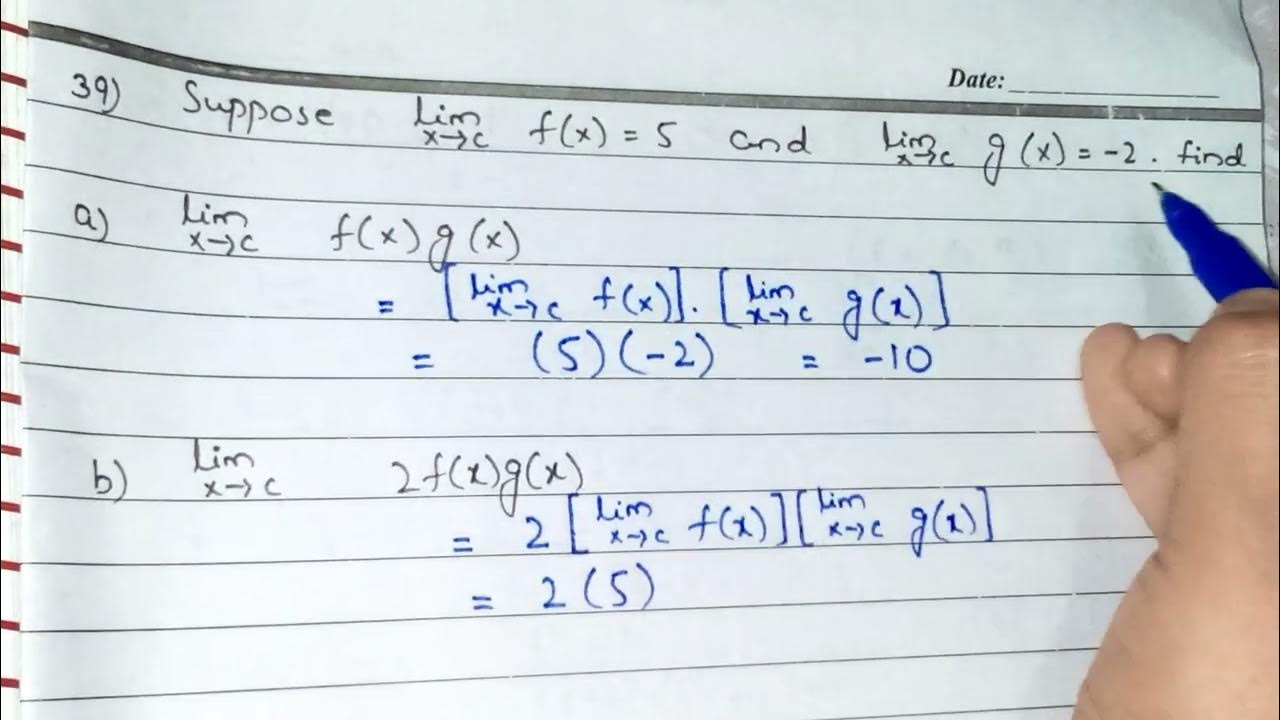 Date:
39) Suppose lim x→c f(x) = 5 and lim x→c g(x) = -2. find
a) lim x→c f(x) g(x)
= [lim x→c f(x)]. [lim x→c g(x)]
= (5)(-2) = -10
b) lim x→c 2f(x)g(x)
= 2 [lim x→c f(x)][lim x→c g(x)]
= 2 (5)